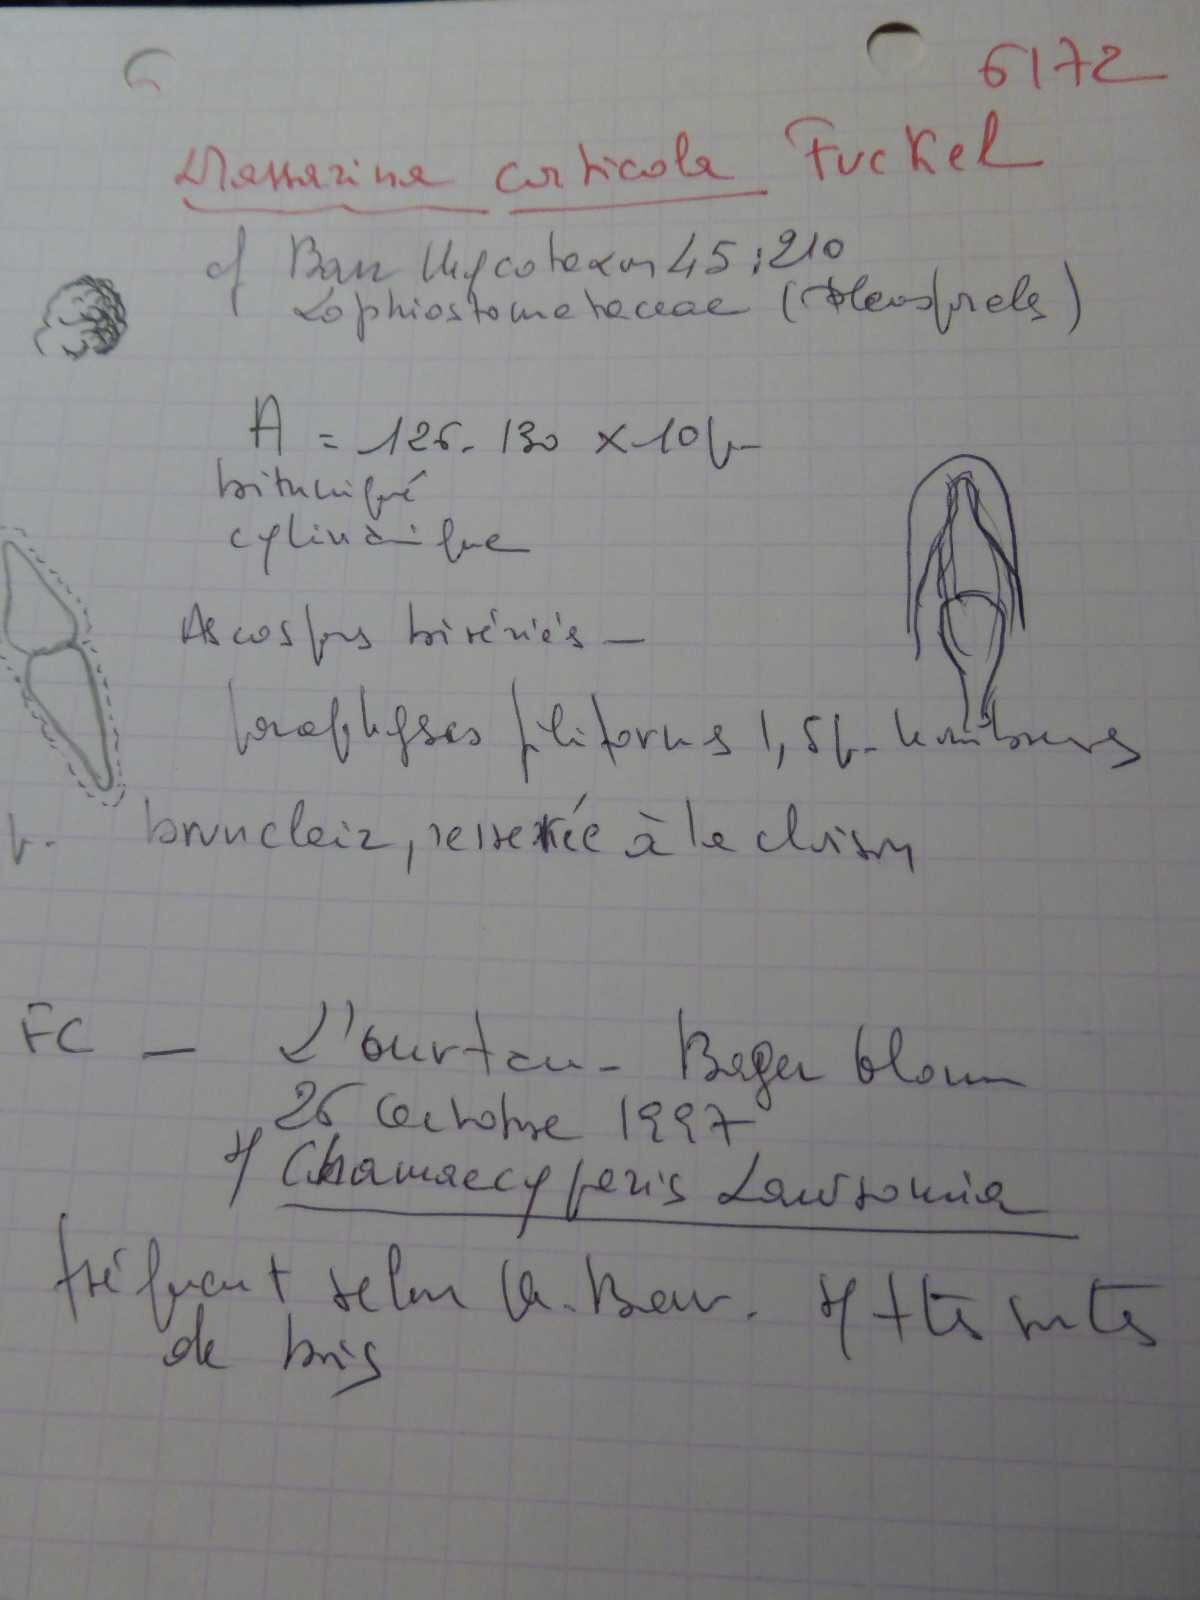 6172
Massarina corticola Fuckel
cf Barr Mycotaxon 45:210
Lophiostomataceae (Pleosporales)
A = 126-130 × 10 µ
bituniqué
cylindrique
Ascospores bisériés —
paraphyses filiformes 1,5 µ nombreuses
µ. brun clair, resserrée à la cloison
FC — L'ourtau -
26 Octobre 1997
s/ Chamaecyparis Lawsonia
fréquent selon M. Barr. s/ ttes sortes
de bois